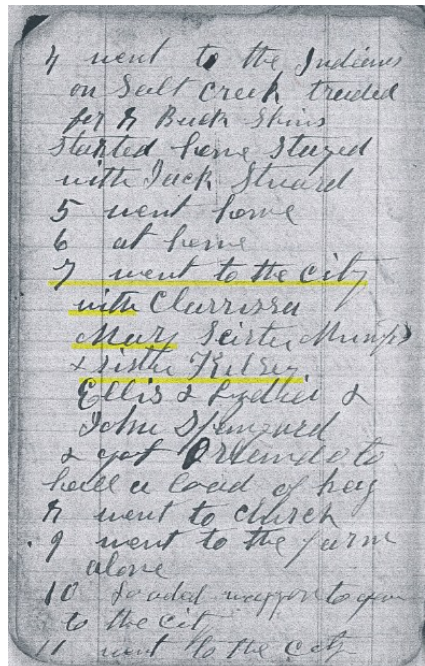 4 went to the Indians
on Salt Creek traded
for 8 Buck Skins
Started home Stayed
with Jack Stuard
5 went home
6 at home
7 went to the city
with Clarrissa
Mary Scister Mumps
& sister Kelsey
Ellis & Lydhei &
John Spengard
& got Orlando to
hall a load of hay
8 went to church
9 went to the farm
alone
10 loaded waggon to
to the city
11 went to the City